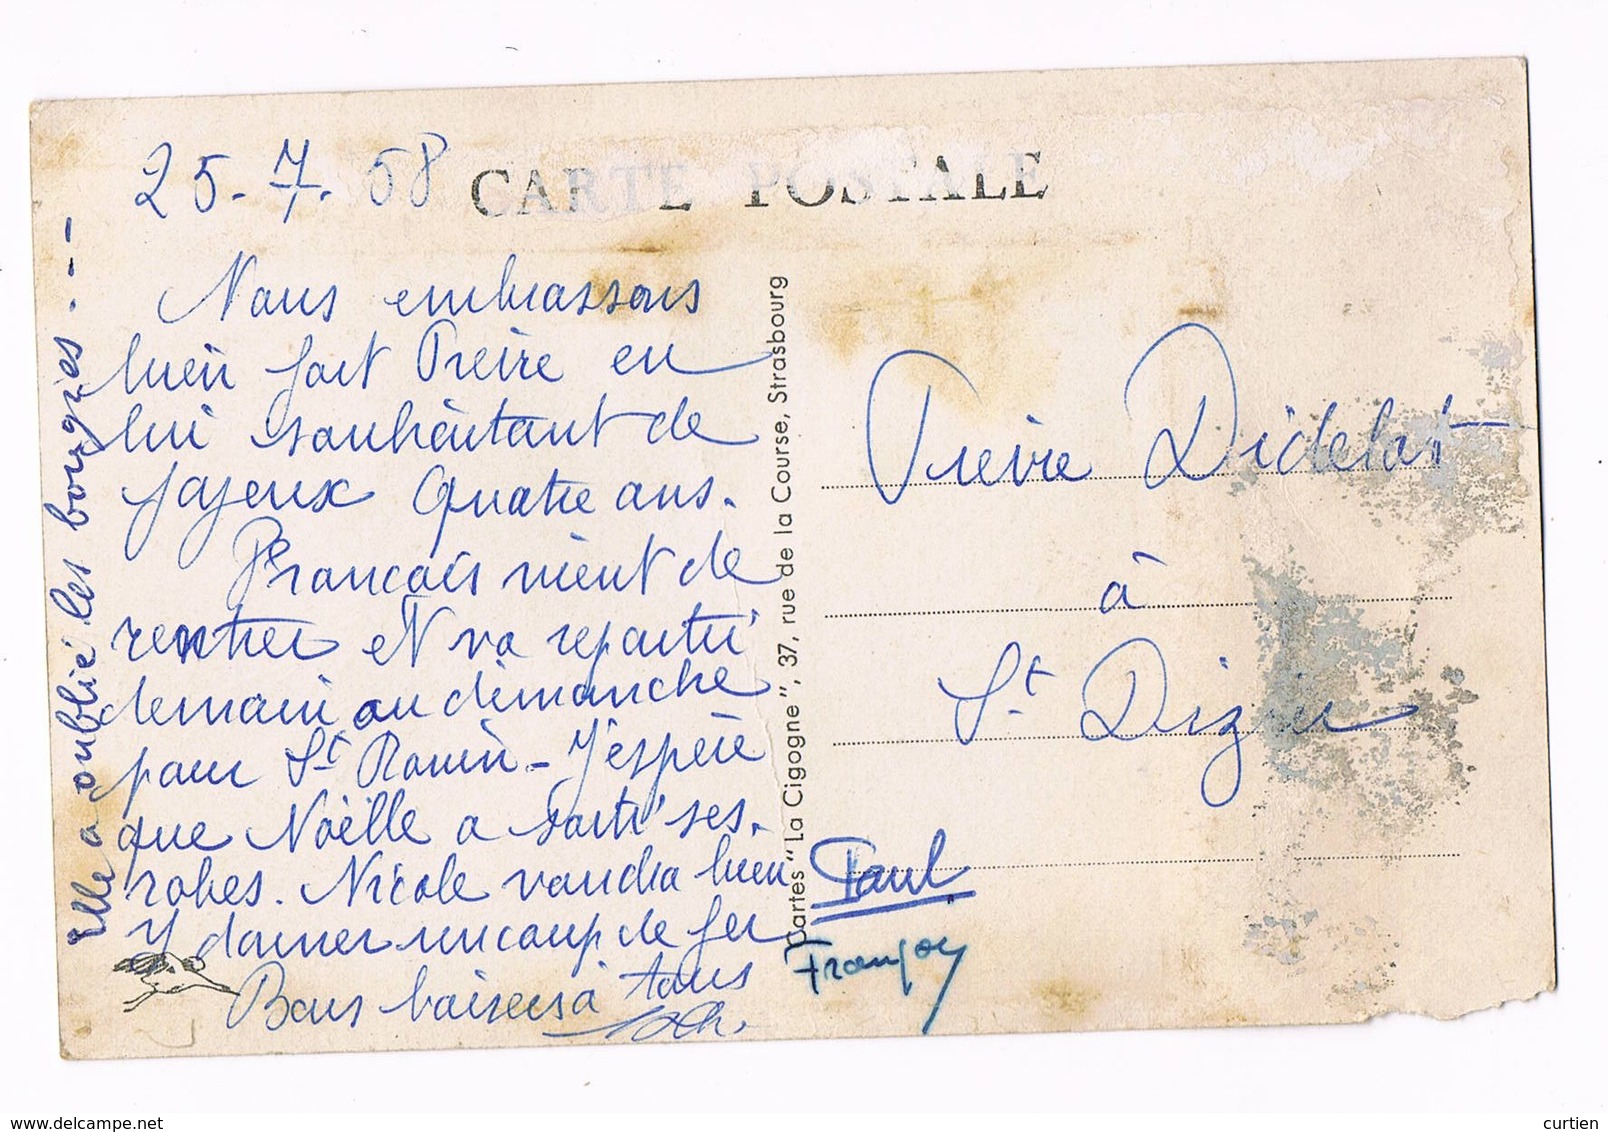 25.7.58
CARTE POSTALE
Nous embrassons
bien fort Pierre en
lui souhaitant de
joyeux quatre ans.
François vient de
rentrer et va repartir
demain ou dimanche
pour St Rouin - J'espère
que Noëlle a sorti ses
robes. Nicole voudra bien
y donner un coup de fer
Bons baisers à tous
Elle a oublié les bougies...
Cartes "La Cigogne", 37, rue de la Course, Strasbourg
Pierre Didelot
à
St Dizier
Paul
Françoi
curtien